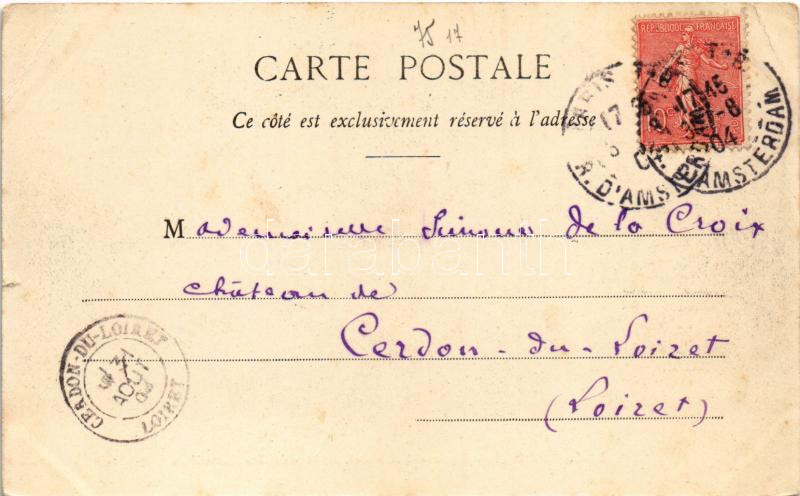 75 17
CARTE POSTALE
Ce côté est exclusivement réservé à l'adresse
REPUBLIQUE FRANÇAISE
17 45
-8
04
R. D'AMSTERDAM
Mademoiselle Simone de la Croix
château de
Cerdon-du-Loiret
(Loiret)
CERDON-DU-LOIRET
31
AOUT
04
LOIRET
darabanth